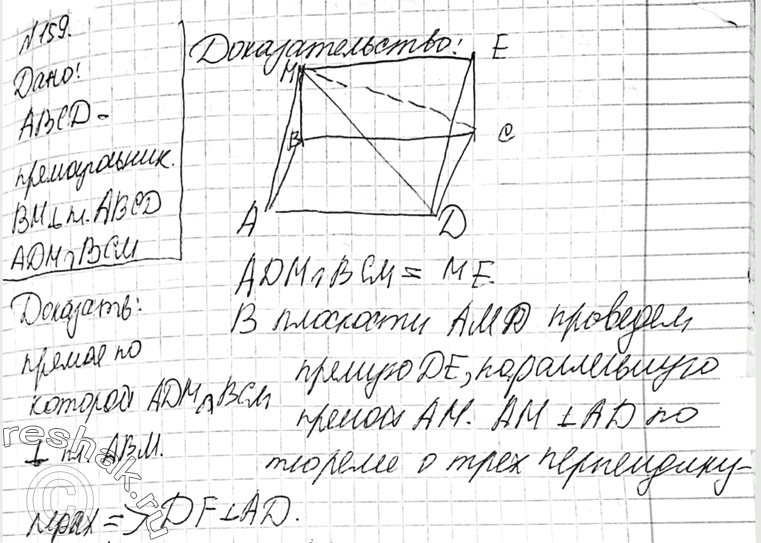 №159.
Дано:
ABCD -
прямоугольник.
BM⊥пл. ABCD
ADM∩BCM
Доказать:
прямая по
которой ADM∩BCM
⊥ пл. ABM.
Доказательство:
M
E
B
C
A
D
ADM∩BCM = ME.
В плоскости AMD проведем
прямую DE, параллельную
прямой AM. AM⊥AD по
теореме о трех перпендику-
лярах => DF⊥AD.
reshak.ru